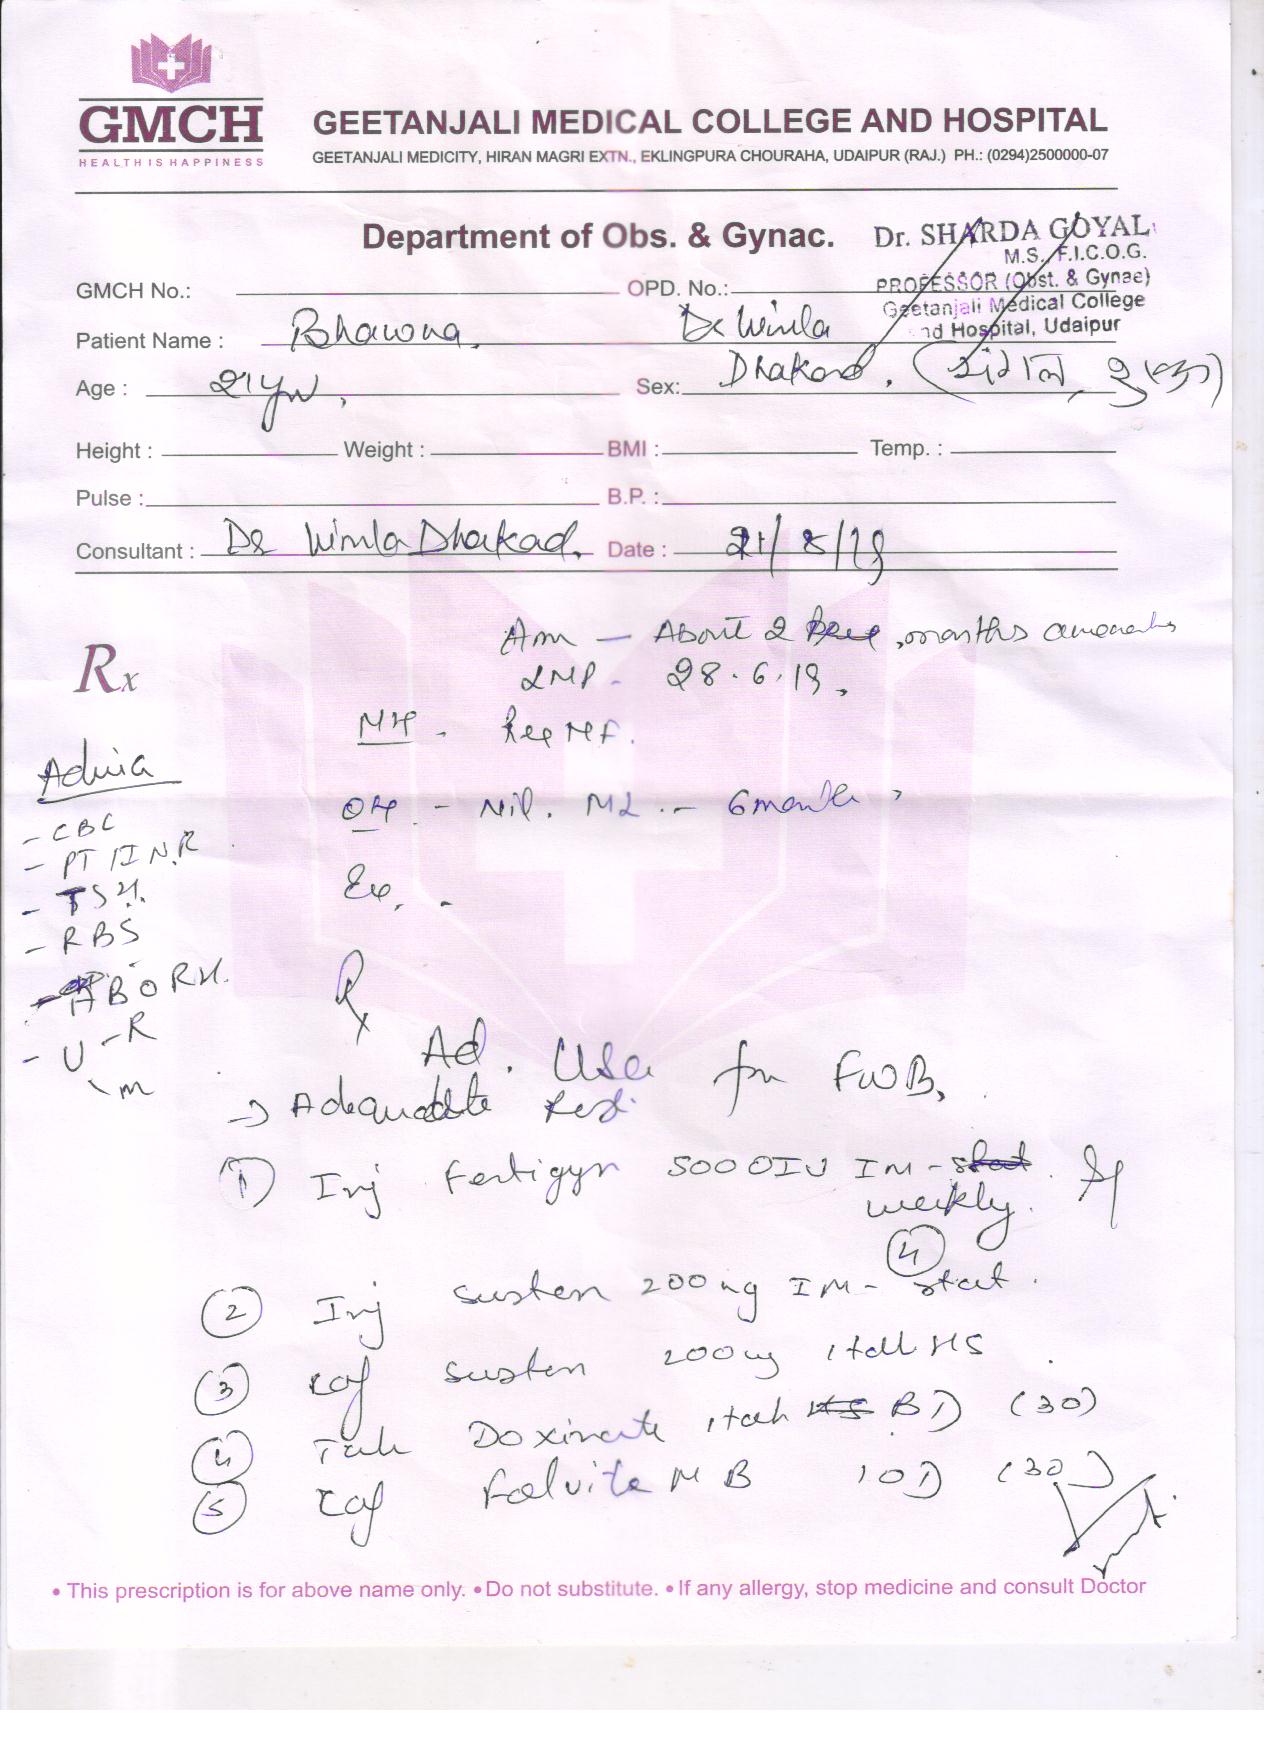 GMCH
HEALTH IS HAPPINESS
GEETANJALI MEDICAL COLLEGE AND HOSPITAL
GEETANJALI MEDICITY, HIRAN MAGRI EXTN., EKLINGPURA CHOURAHA, UDAIPUR (RAJ.) PH.: (0294)2500000-07
Department of Obs. & Gynac.
Dr. SHARDA GOYAL
M.S., F.I.C.O.G.
PROFESSOR (Obst. & Gynae)
Geetanjali Medical College
nd Hospital, Udaipur
GMCH No.: OPD. No.:
Patient Name : Bhawna. Dr Wimla
Age : 21 yrs, Sex: Dhakad.
Height : Weight : BMI : Temp. :
Pulse : B.P. :
Consultant : Dr Wimla Dhakad. Date : 21/8/19
Rx
Am — About 2 months
LMP - 28.6.19.
MH - Reg NF.
OH - Nil. ML - 6 month
Ex. -
Advice
- CBC
- PT/INR
- TSH.
- RBS
- ABO RH.
- U - R
\ m
Rx
Ad. USG for FWB.
→ Adequate Rest.
1 Inj Fertigyn 5000IU IM - weekly.
4
2 Inj susten 200mg IM - stat.
3 Cap susten 200mg 1 tab HS
4 Tab Doxinate 1 tab BD (30)
5 Cap Folvite MB 1OD (30)
• This prescription is for above name only. • Do not substitute. • If any allergy, stop medicine and consult Doctor